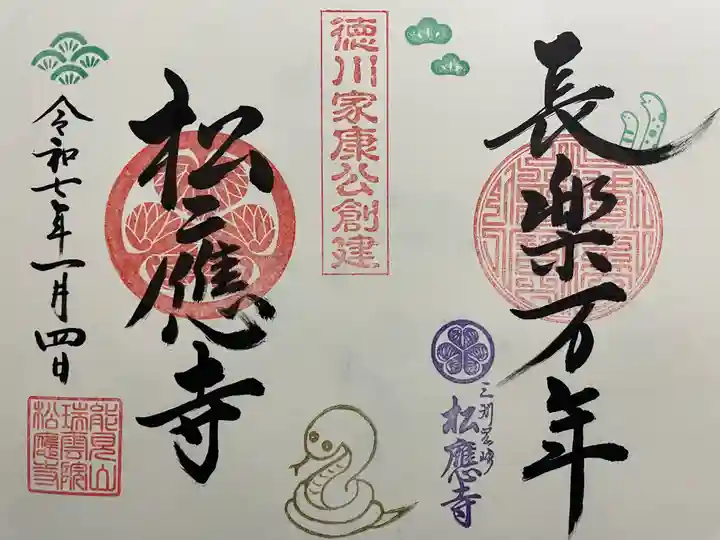 長楽万年
三州岡崎
松應寺
徳川家康公創建
松應寺
令和七年一月四日
能見山
瑞雲院
松應寺